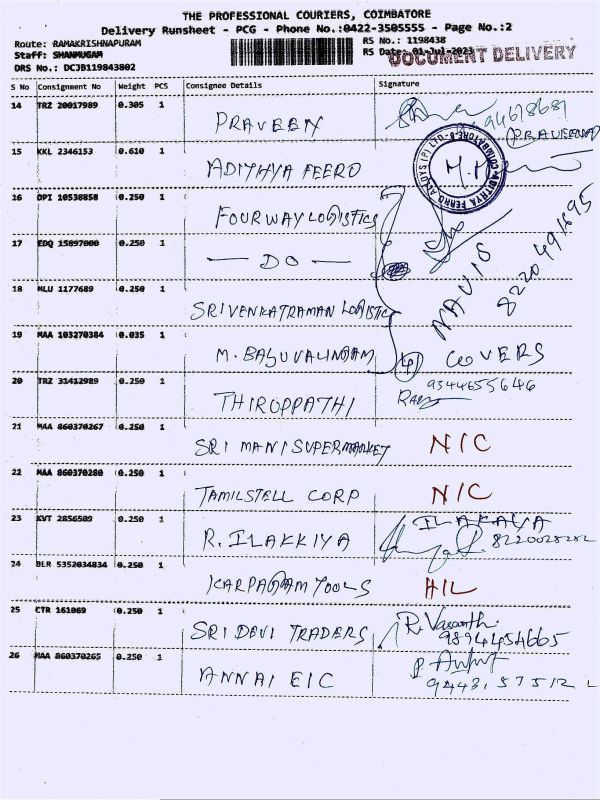 THE PROFESSIONAL COURIERS, COIMBATORE
Delivery Runsheet - PCG - Phone No.:0422-3505555 - Page No.:2
Route: RAMAKRISHNAPURAM
Staff: SHANMUGAM
DRS No.: DCJB119843802
RS No.: 1198438
RS Date: 01-Jul-2023
DOCUMENT DELIVERY
S No Consignment No Weight PCS Consignee Details Signature
14 TRZ 20017989 0.305 1 PRAVEEN
PRAVEEN
15 KKL 2346153 0.610 1 ADITHYA FEERO
ADITHYA FERRO ALLOYS (P) LTD COIMBATORE
16 OPI 10538850 0.250 1 FOURWAY LOGISTICS
17 EDQ 15897000 0.250 1 — DO —
NAVIS
8220491695
18 MLU 1177689 0.250 1 SRIVENKATRAMAN LOGISTICS
19 MAA 103270384 0.035 1 M. BASUVALINGAM 4 COVERS
20 TRZ 31412989 0.250 1 THIROPPATHI 9344655646
21 MAA 860370267 0.250 1 SRI MANI SUPERMARKET N/C
22 MAA 860370280 0.250 1 TAMILSTELL CORP N/C
23 KVT 2856509 0.250 1 R. ILAKKIYA ILAKAYA
24 BLR 5352034834 0.250 1 KARPAGAM TOOLS H/L
25 CTR 161069 0.250 1 SRI DEVI TRADERS R. Vasanth
9894454665
26 MAA 860370265 0.250 1 ANNAI EIC